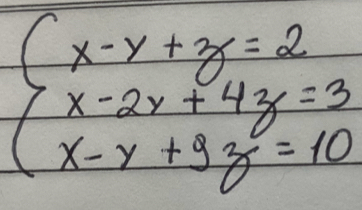 x - y + z = 2
x - 2y + 4z = 3
x - y + 9z = 10